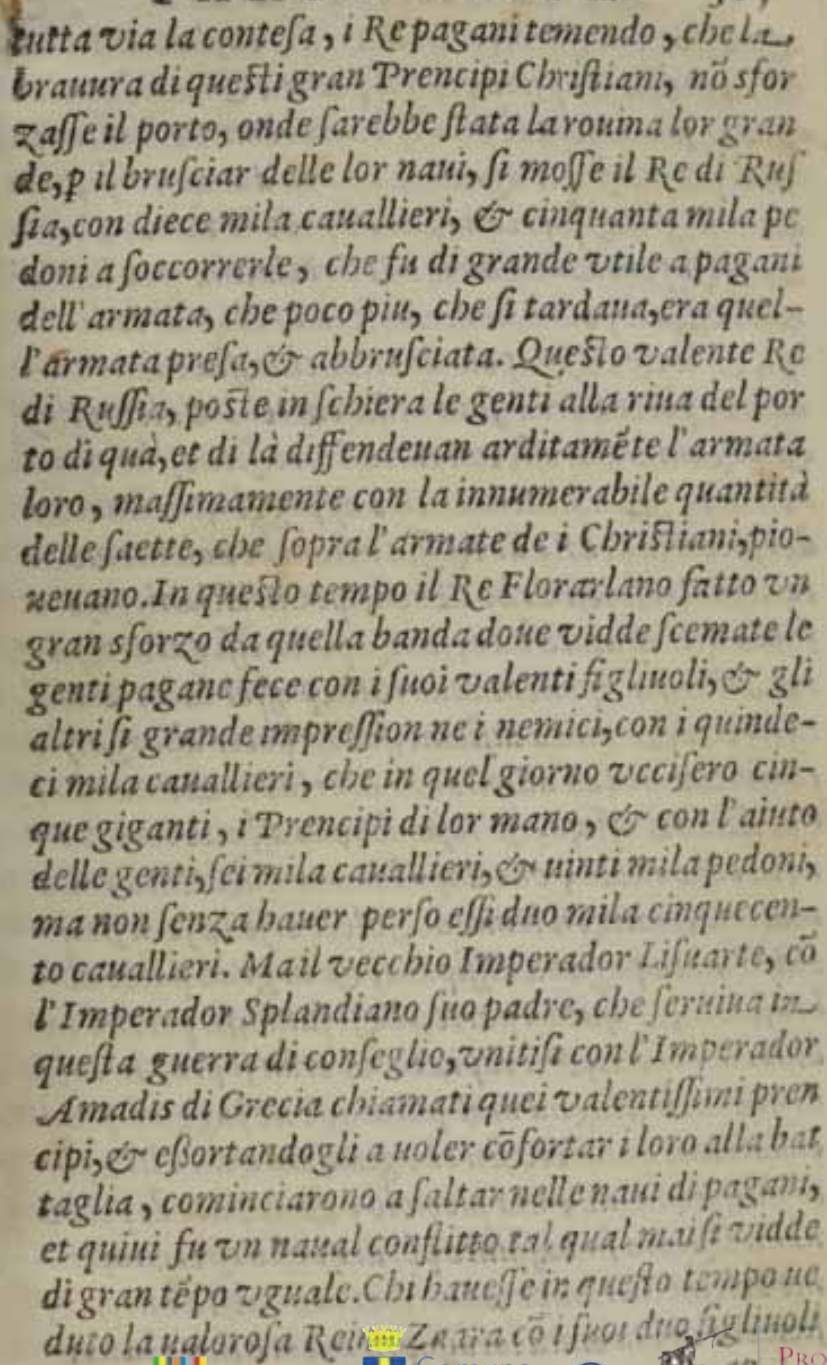 tutta via la contesa, i Re pagani temendo, che la
brauura di questi gran Prencipi Christiani, nõ sfor
zasse il porto, onde sarebbe stata la rouina lor gran
de, p il brusciar delle lor naui, si mosse il Re di Rus
sia, con diece mila cauallieri, & cinquanta mila pe
doni a soccorrerle, che fu di grande vtile a pagani
dell'armata, che poco piu, che si tardaua, era quel-
l'armata presa, & abbrusciata. Questo valente Re
di Russia, poste in schiera le genti alla riua del por
to di quà, et di là diffendeuan arditamẽte l'armata
loro, massimamente con la innumerabile quantità
delle saette, che sopra l'armate de i Christiani, pio-
ueuano. In questo tempo il Re Florarlano fatto vn
gran sforzo da quella banda doue vidde scemate le
genti pagane fece con i suoi valenti figliuoli, & gli
altri si grande impression ne i nemici, con i quinde-
ci mila cauallieri, che in quel giorno vccisero cin-
que giganti, i Prencipi di lor mano, & con l'aiuto
delle genti, sei mila cauallieri, & uinti mila pedoni,
ma non senza hauer perso essi duo mila cinquecen-
to cauallieri. Ma il vecchio Imperador Lisuarte, cõ
l'Imperador Splandiano suo padre, che seruiua in
questa guerra di conseglio, vnitisi con l'Imperador
Amadis di Grecia chiamati quei valentissimi pren
cipi, & essortandogli a uoler cõfortar i loro alla bat
taglia, cominciarono a saltar nelle naui di pagani,
et quiui fu vn naual conflitto tal qual mai si vidde
di gran tẽpo vguale. Chi hauesse in questo tempo ue
duto la ualorosa Reina Zaara cõ i suoi duo figliuoli
PRO